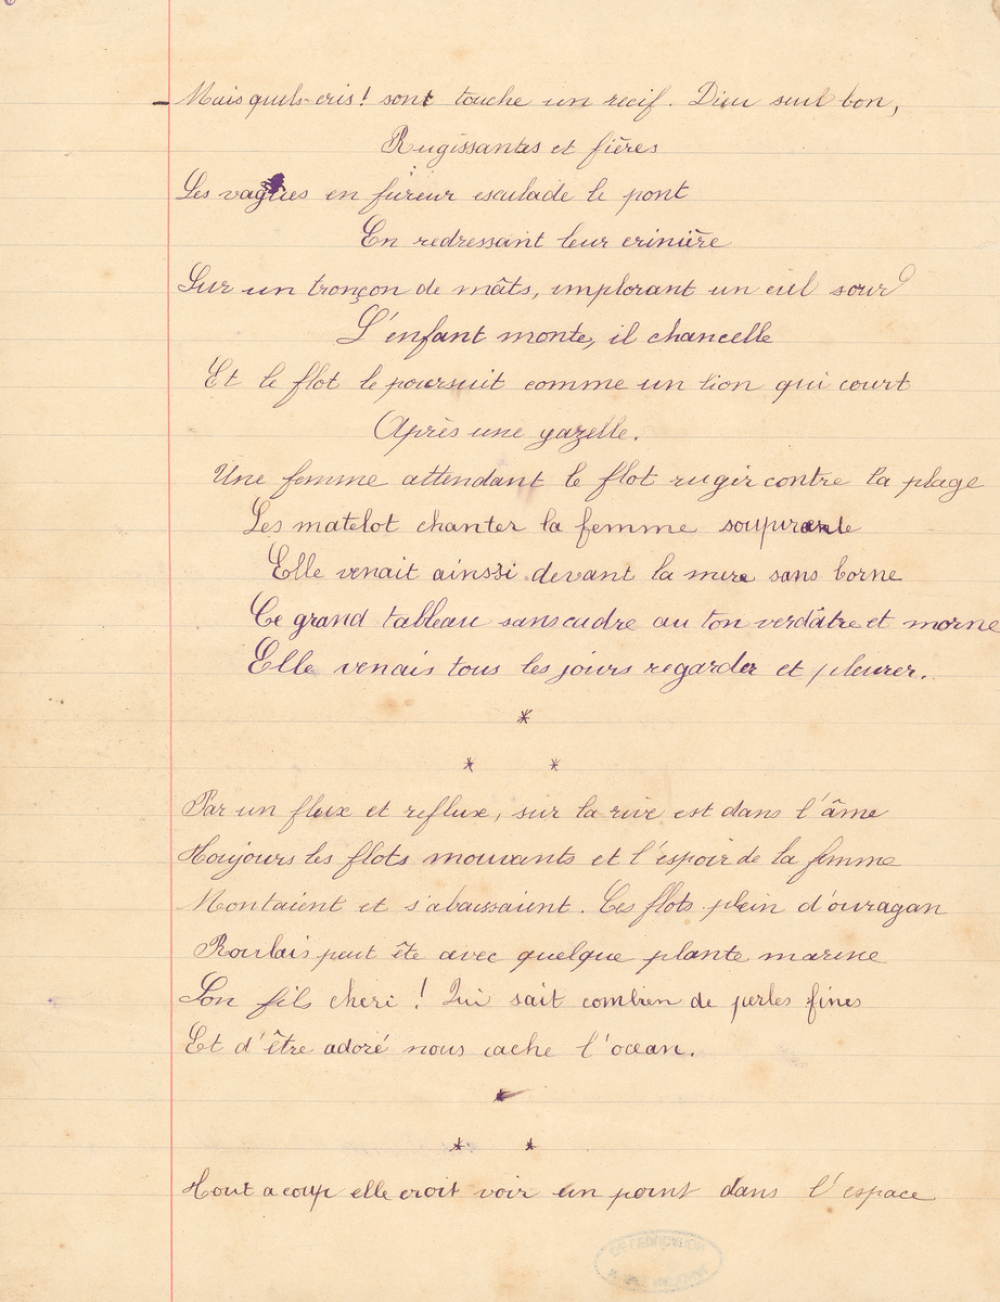 Mais quels cris! sont touche un recif. Dieu seul bon,
Rugissantes et fières
Les vagues en fureur esculade le pont
En redressant leur crinière
Sur un tronçon de mâts, implorant un ciel sourd
L'enfant monte, il chancelle
Et le flot le poursuit comme un lion qui court
Après une gazelle.
Une femme attendant le flot rugir contre la plage
Les matelot chanter la femme soupirante
Elle venait ainssi devant la mere sans borne
Ce grand tableau sans cadre au ton verdâtre et morne
Elle venais tous les jours regarder et pleurer.
*
* *
Par un flux et reflux, sur la rive est dans l'âme
Toujours les flots mouvants et l'espoir de la femme
Montaient et s'abaissaient. Ces flots plein d'ouragan
Roulais peut ête avec quelque plante marine
Son fils cheri! Qui sait combien de perles fines
Et d'être adoré nous cache l'océan.
*
* *
Tout a coup elle croit voir un point dans l'espace